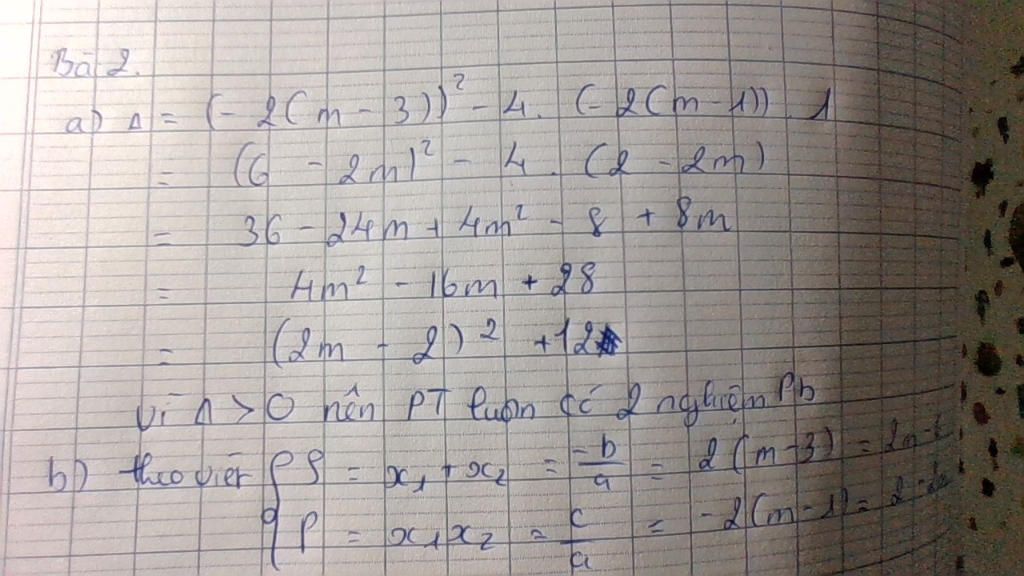 Bài 2.
a) Δ = (- 2(m - 3))² - 4. (- 2(m - 1)) . 1
= (6 - 2m)² - 4 . (2 - 2m)
= 36 - 24m + 4m² - 8 + 8m
= 4m² - 16m + 28
= (2m - 2)² + 12
Vì Δ > 0 nên PT luôn có 2 nghiệm Pb
b) theo viét { S = x₁ + x₂ = -b/a = 2(m-3) = 2m-6
P = x₁x₂ = c/a = -2(m-1) = 2-2m